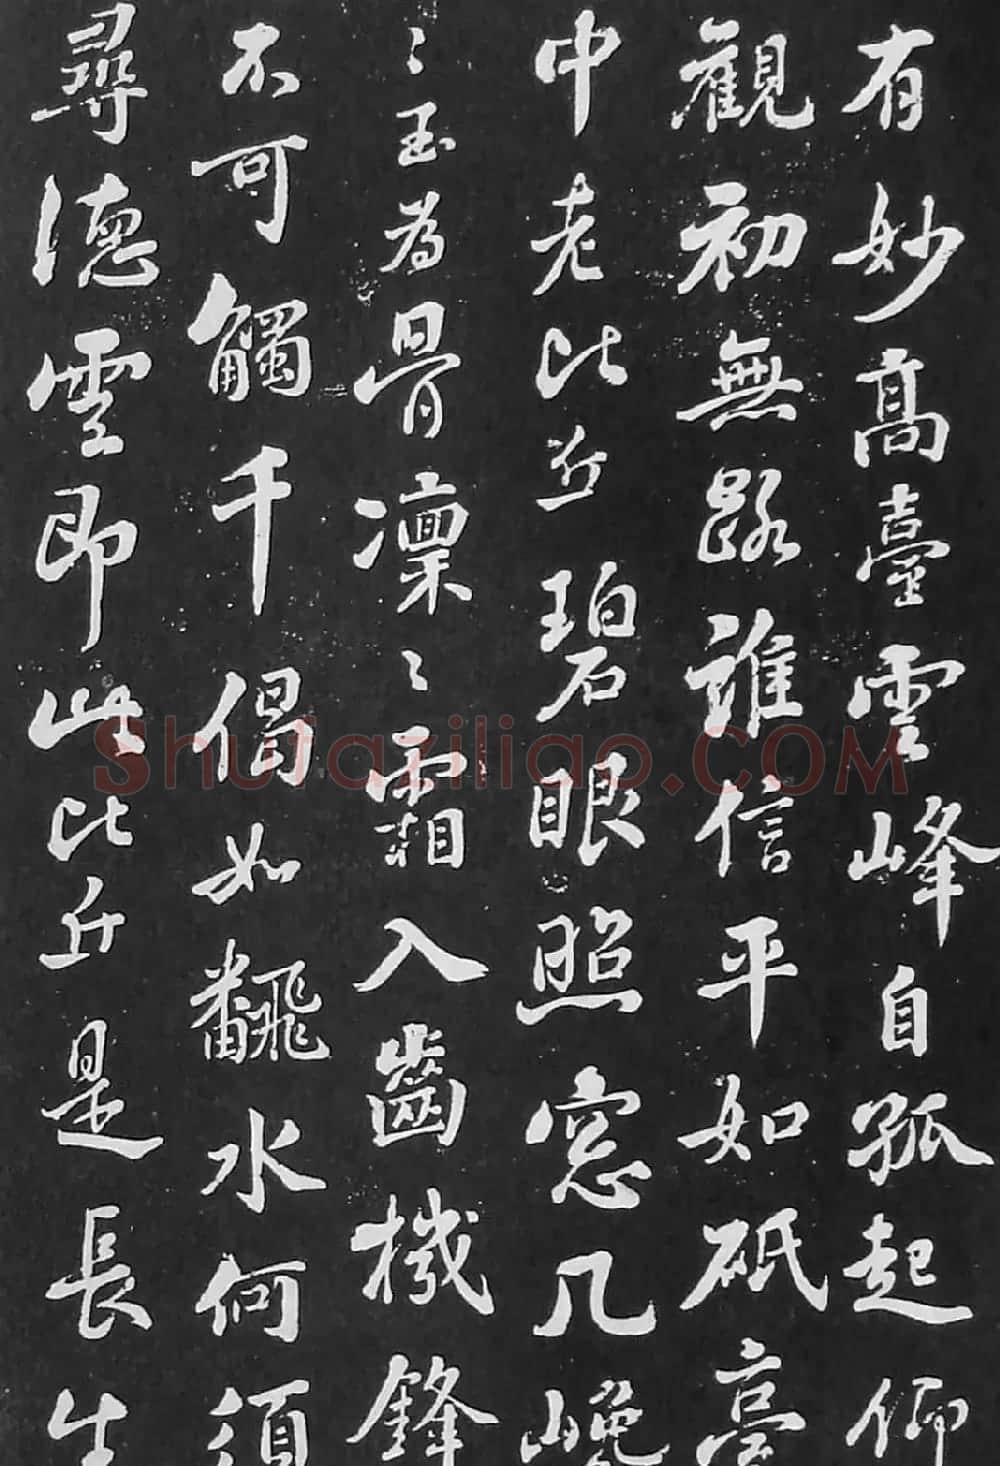 有妙高臺雲峰自孤起仰
觀初無路誰信平如砥臺
中老比丘碧眼照窓几巉
〻玉為骨凜〻霜入齒機鋒
不可觸千偈如飜水何須
尋德雲即此比丘是長生
Shufaziliao.COM